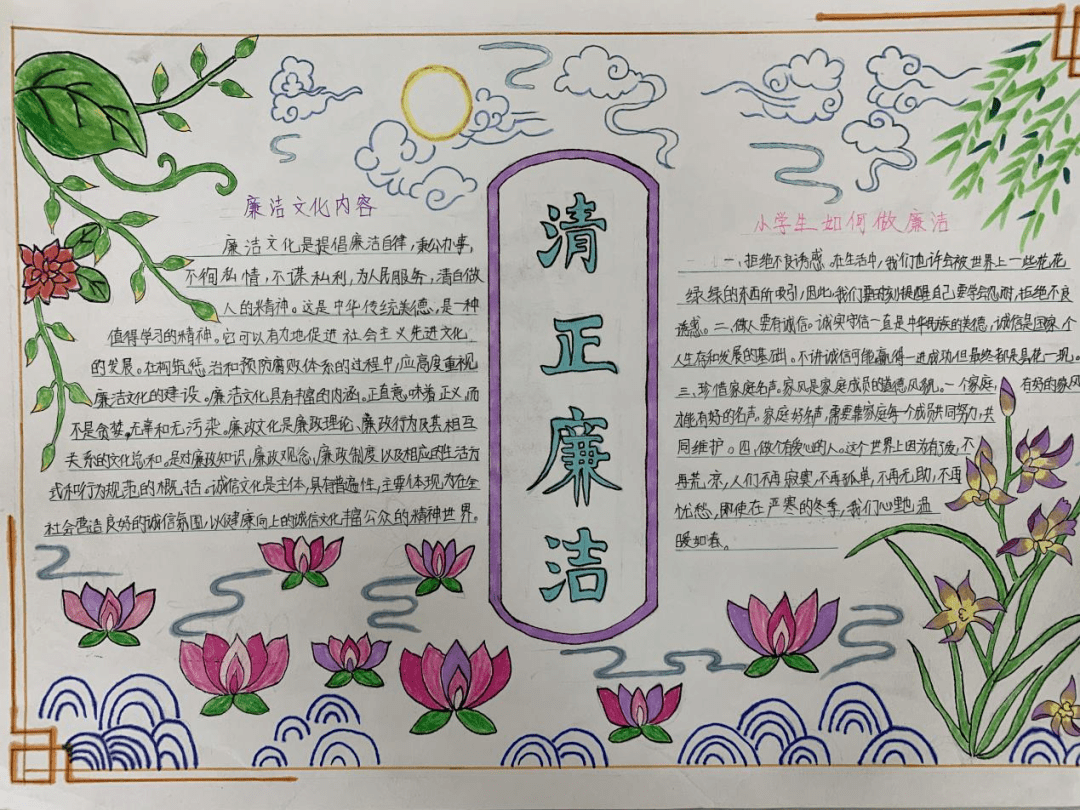 廉洁文化内容
廉洁文化是提倡廉洁自律,秉公办事,
不徇私情,不谋私利,为人民服务,清白做
人的精神。这是中华传统美德,是一种
值得学习的精神。它可以有力地促进社会主义先进文化
的发展。在构筑惩治和预防腐败体系的过程中,应高度重视
廉洁文化的建设。廉洁文化具有丰富的内涵。正直意味着正义,而
不是贪婪,无辜和无污染。廉政文化是廉政理论、廉政行为及其相互
关系的文化总和。是对廉政知识,廉政观念,廉政制度以及相应的生活方
式和行为规范的概括。诚信文化是主体,具有普遍性,主要体现为在全
社会营造良好的诚信氛围,以健康向上的诚信文化丰富公众的精神世界。
清正廉洁
小学生如何做廉洁
一、拒绝不良诱惑。在生活中,我们也许会被世界上一些花花
绿绿的东西所吸引,因此,我们要时刻提醒自己要学会忍耐,拒绝不良
诱惑。二、做人要有诚信。诚实守信一直是中华民族的美德,诚信是国家、个
人生存和发展的基础。不讲诚信可能赢得一进成功,但最终都是昙花一现。
三、珍惜家庭名声。家风是家庭成员的道德风貌。一个家庭,有好的家风
才能有好的名声。家庭好名声,需要靠家庭每个成员共同努力,共
同维护。四、做个有爱心的人。这个世界上因为有了爱。不
再荒凉,人们不再寂寞,不再孤单,不再无助,不再
忧愁,即使在严寒的冬季,我们心地温
暖如春。